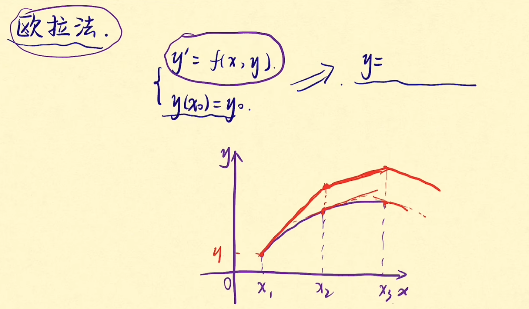 欧拉法.
y' = f(x, y).
y =
y(x₀) = y₀.
y
y
0 x₁ x₂ x₃ x